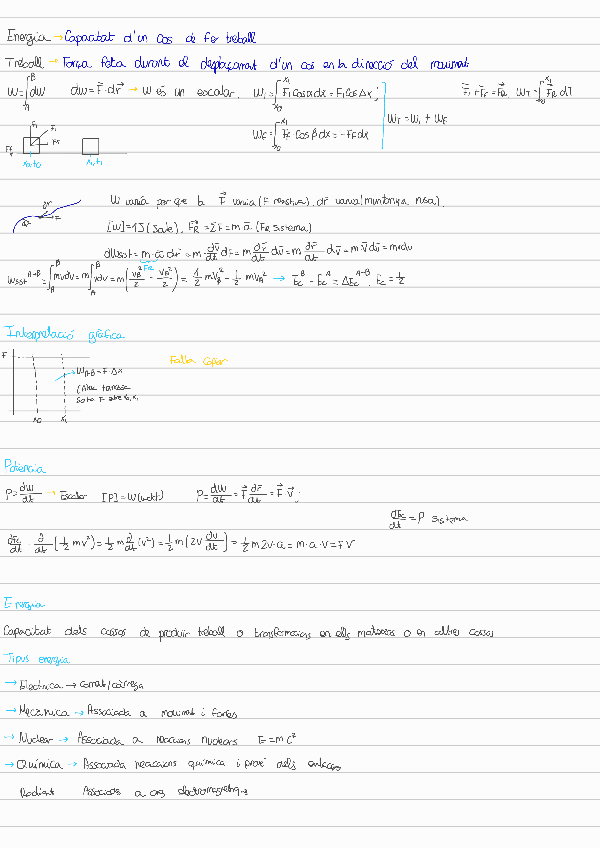 Energia → Capacitat d'un cos de fer treball
Treball → Força feta durant el desplaçament d'un cos en la direcció del moviment
W = ∫_A^B dW   dW = F⃗ · dr⃗ → W és un escalar.   W₁ = ∫_{x₀}^{x₁} F₁ cos α dx = F₁ cos α Δx ;   F⃗₁ + F⃗_F = F⃗_R   W_T = ∫_{x₀}^{x₁} F⃗_R dr⃗
W_F = ∫_{x₀}^{x₁} F_F cos β dx = -F_F dx   W_T = W₁ + W_F
x₀, t₀   x₁, t₁
W varia per que la F⃗ varia (F resistiva), dr⃗ varia (muntanya russa).
[W] = 1J (Joule). F⃗_R = ΣF = m·a⃗. (F_R sistema)
dW_sist = m·a⃗ dr⃗ = m dv⃗/dt dr⃗ = m dr⃗/dt dv⃗ = m v⃗ dv⃗ = m v dv
W_sist^{A→B} = ∫_A^B m v dv = m ∫_A^B v dv = m (v_B²/2 - v_A²/2) = 1/2 m v_B² - 1/2 m v_A² → E_c^B - E_c^A = ΔE_c^{A→B}. E_c = 1/2
Interpretació gràfica
F
Falta copiar
W_{A→B} = F · Δx
x₀   x₁
Potència
P = dW/dt → Escalar   [P] = W (watt)   P = dW/dt = F⃗ dr⃗/dt = F⃗ v⃗ ;
dE_c/dt = P sistema
dE_c/dt = d/dt (1/2 m v²) = 1/2 m d/dt (v²) = 1/2 m (2v dv/dt) = 1/2 m 2v·a = m·a·v = F v
Energia
Capacitat dels cossos de produir treball o transformacions en ells mateixos o en altres cossos
Tipus energia
→ Elèctrica → corrent/càrrega
→ Mecànica → Associada a moviment i forces
→ Nuclear → Associada a reaccions nuclears E = m c²
→ Química → Associada reaccions química i prové dels enllaços
Radiant   Associada a ones electromagnètiques